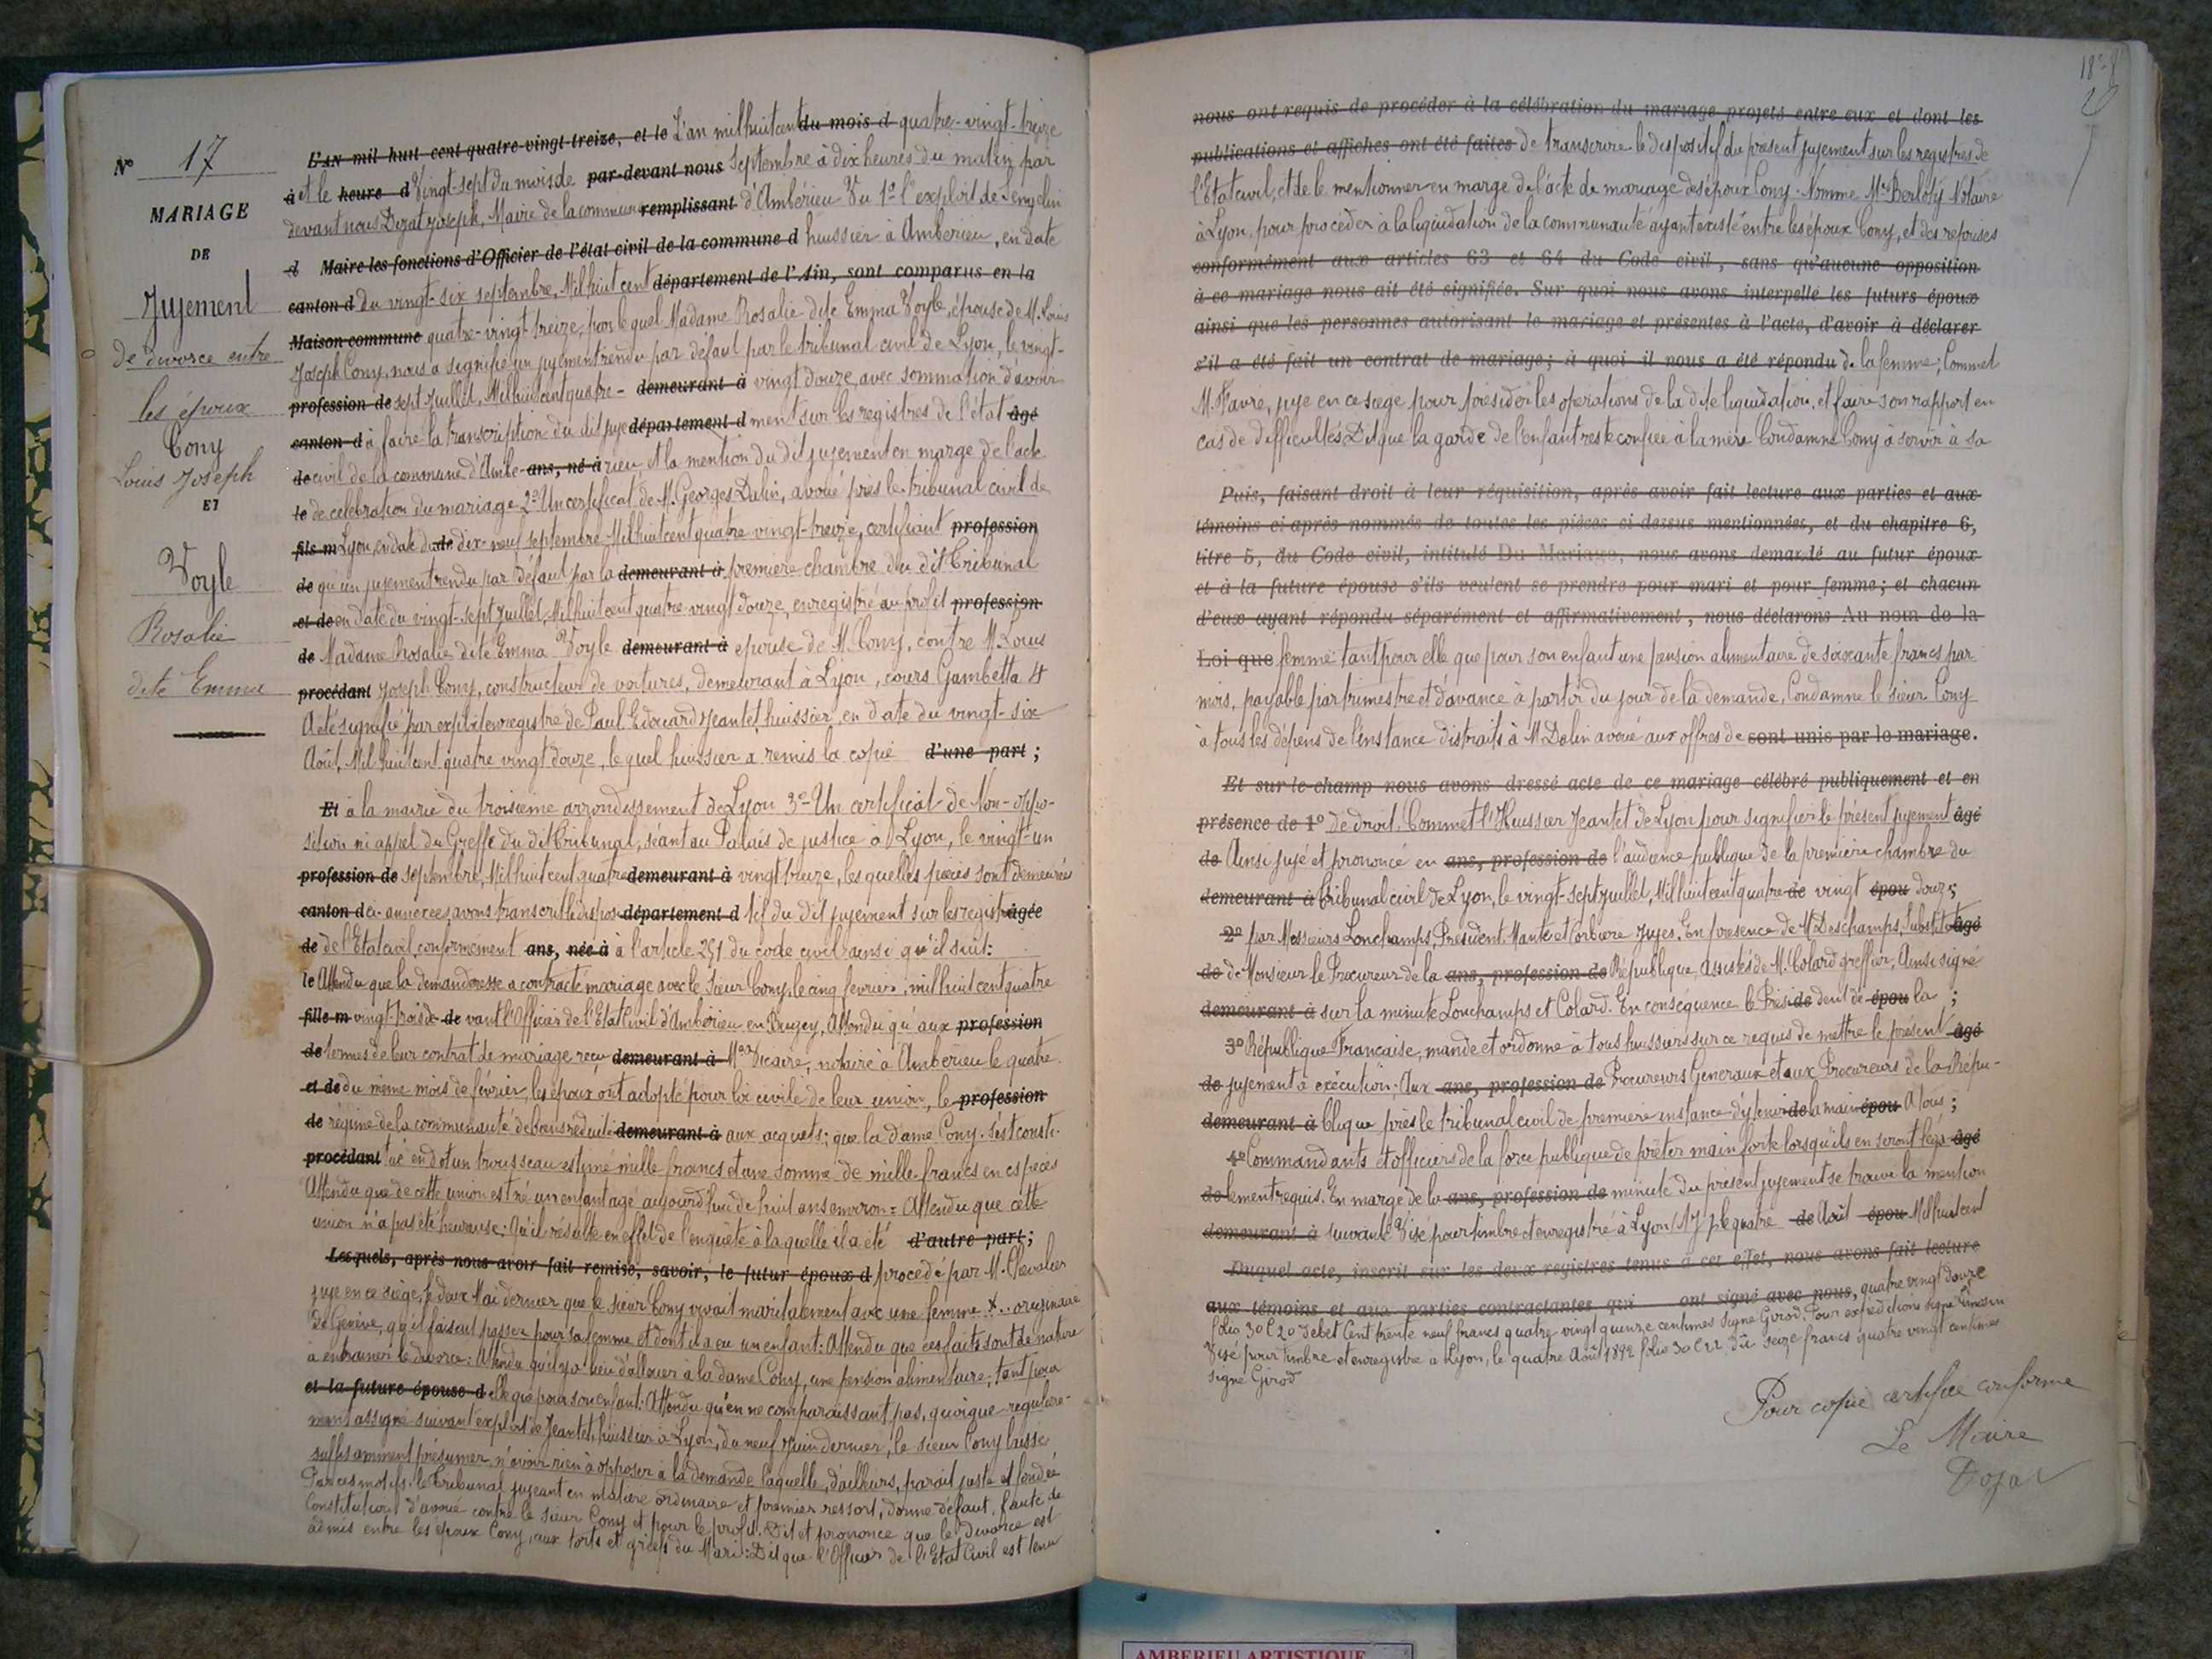 N° 17
MARIAGE
DE
Jujement
de divorce entre
les époux
Cony
Louis Joseph
ET
Voyle
Rosalie
dite Emma
L'an mil huit cent quatre-vingt-treize, et le L'an mil huit cent du mois d quatre-vingt-treize
à et le heure d Vingt-sept du mois de par-devant nous Septembre à dix heures du matin par
devant nous Dezat Joseph, Maire de la commune remplissant d'Ambérieu Vu 1° l'exploit de Sengelin
d Maire les fonctions d'Officier de l'état civil de la commune d huissier à Ambérieu, en date
canton d du vingt-six septembre, Mil huit cent département de l'Ain, sont comparus en la
Maison commune quatre-vingt treize, par lequel Madame Rosalie dite Emma Voyle, épouse de M. Louis
Joseph Cony, nous a signifié un jujement rendu par défaut par le tribunal civil de Lyon, le vingt-
profession de sept Juillet, Mil huit cent quatre- demeurant à vingt douze, avec sommation d'avoir
canton d à faire la transcription du dit juje département d ment sur les registres de l'état âgé
de civil de la commune d'Ambé- ans, né à rieu et la mention du dit jujement en marge de l'acte
le de célébration du mariage 2° Un certificat de M. Georges Dalin, avoué près le tribunal civil de
fils m Lyon, en date du de dix-neuf septembre Mil huit cent quatre vingt-treize, certifiant profession
de qu'un jujement rendu par défaut par la demeurant à première chambre du dit Tribunal
et de en date du vingt-sept Juillet, Mil huit cent quatre vingt douze, enregistré au profit profession
de Madame Rosalie dite Emma Voyle demeurant à épouse de M. Cony, contre M. Louis
procédant Joseph Cony, constructeur de voitures, demeurant à Lyon, cours Gambetta 4
A été signifié par exploit enregistré de Paul Edouard Jeantet, huissier, en date du vingt-six
Août, Mil huit cent quatre vingt douze, lequel huissier a remis la copie d'une part ;
Et à la mairie du troisième arrondissement de Lyon 3° Un certificat de Non-oppo-
sition ni appel du Greffe du dit Tribunal, séant au Palais de justice à Lyon, le vingt-un
profession de septembre, Mil huit cent quatre demeurant à vingt treize, les quelles pièces sont demeurées
canton d ci-annexées, avons transcrit le dispo- département d tif du dit jujement sur les registres âgée
de de l'Etat civil, conformément ans, née à à l'article 251 du code civil ainsi qu'il suit:
le Attendu que la demanderesse a contracté mariage avec le sieur Cony, le cinq février, mil huit cent quatre
fille m vingt-trois de vant l'Officier de l'Etat Civil d'Ambérieu en Bugey, Attendu qu'aux profession
de termes de leur contrat de mariage reçu demeurant à Me Vicaire, notaire à Ambérieu le quatre
et de du même mois de février, les époux ont adopté pour loi civile de leur union, le profession
de régime de la communauté de biens réduite demeurant à aux acquets; que la dame Cony s'est consti-
procédant tué en dot un trousseau estimé mille francs et une somme de mille francs en espèces
Attendu que de cette union est né un enfant agé aujourd'hui de huit ans environ = Attendu que cette
union n'a pas été heureuse; Qu'il résulte en effet de l'enquête à laquelle il a été d'autre part ;
Lesquels, après nous avoir fait remise, savoir, le futur époux d procédé par M. Chevalier
juje en ce siège, le deux Mai dernier que le sieur Cony vivait maritalement avec une femme X.. originaire
de Genève, qu'il faisait passer pour sa femme et dont il a eu un enfant: Attendu que ces faits sont de nature
a entrainer le divorce: Attendu qu'il y a lieu d'allouer à la dame Cony, une pension alimentaire; tant pour
et la future épouse d elle que pour son enfant: Attendu qu'en ne comparaissant pas, quoique régulière-
ment assigné suivant exploit de Jeantet, huissier à Lyon, du neuf Juin dernier, le sieur Cony laisse
suffisamment présumer n'avoir rien à opposer à la demande laquelle, d'ailleurs, parait juste et fondée
Par ces motifs. le Tribunal jujeant en matière ordinaire et premier ressort, donne défaut, faute de
Constitution d'avoué contre le sieur Cony et pour le profit. Dit et prononce que le divorce est
admis entre les époux Cony, aux torts et griefs du Mari: Dit que l'Officier de l'Etat Civil est tenu
nous ont requis de procéder à la célébration du mariage projeté entre eux et dont les
publications et affiches ont été faites de transcrire le dispositif du présent jujement sur les registres de
l'Etat civil, et de le mentionner en marge de l'acte de mariage des époux Cony. Nomme Me Berloty Notaire
à Lyon, pour procéder à la liquidation de la communauté ayant existé entre les époux Cony, et des reprises
conformément aux articles 63 et 64 du Code civil, sans qu'aucune opposition
à ce mariage nous ait été signifiée. Sur quoi nous avons interpellé les futurs époux
ainsi que les personnes autorisant le mariage et présentes à l'acte, d'avoir à déclarer
s'il a été fait un contrat de mariage; à quoi il nous a été répondu de la femme; Commet
M. Favre, juje en ce siège pour présider les opérations de la dite liquidation, et faire son rapport en
cas de difficultés Dit que la garde de l'enfant reste confiée à la mère Condamne Cony à servir à sa
Puis, faisant droit à leur réquisition, après avoir fait lecture aux parties et aux
témoins ci-après nommés de toutes les pièces ci-dessus mentionnées, et du chapitre 6,
titre 5, du Code civil, intitulé Du Mariage, nous avons demandé au futur époux
et à la future épouse s'ils veulent se prendre pour mari et pour femme; et chacun
d'eux ayant répondu séparément et affirmativement, nous déclarons Au nom de la
Loi que femme tant pour elle que pour son enfant une pension alimentaire de soixante francs par
mois, payable par trimestre et d'avance à partir du jour de la demande, Condamne le sieur Cony
à tous les dépens de l'instance distraits à M Dalin avoué aux offres de sont unis par le mariage.
Et sur-le-champ nous avons dressé acte de ce mariage célébré publiquement et en
présence de 1° de droit. Commet l'Huissier Jeantet de Lyon pour signifier le présent jujement âgé
de Ainsi jujé et prononcé en ans, profession de l'audience publique de la première chambre du
demeurant à Tribunal civil de Lyon, le vingt-sept juillet, Mil huit cent quatre de vingt épou douze;
2° par Messieurs Lonchamps, Président. Mante et Corbière Jujes. En présence de M Deschamps, Substitut âgé
de de Monsieur le Procureur de la ans, profession de République, assistés de M. Colard greffier, Ainsi signé
demeurant à sur la minute Lonchamps et Colard. En conséquence le Prési de dent de épou la ;
3° République Française, mande et ordonne à tous huissiers sur ce requis de mettre le présent âgé
de jujement à exécution; Aux ans, profession de Procureurs Généraux et aux Procureurs de la Répu-
demeurant à blique près le tribunal civil de première instance d'y tenir de la main épou A tous ;
4° Commandants et officiers de la force publique de prêter main forte lorsqu'ils en seront léga âgé
de lement requis. En marge de la ans, profession de minute du présent jujement se trouve la mention
demeurant à suivante Visé pour timbre et enregistré à Lyon (A J) le quatre de Août épou Mil huit cent
Duquel acte, inscrit sur les deux registres tenus à cet effet, nous avons fait lecture
aux témoins et aux parties contractantes qui ont signé avec nous, quatre vingt douze
folio 30 C 20 Debet Cent trente neuf francs quatre vingt quinze centimes Signé Girod. Pour expéditions signé
Visé pour Timbre et enregistré à Lyon, le quatre Août 1892 folio 30 C 22, dû seize francs quatre vingt centimes
signé Girod
Pour copie certifiée conforme
Le Maire
AMBERIEU ARTISTIQUE